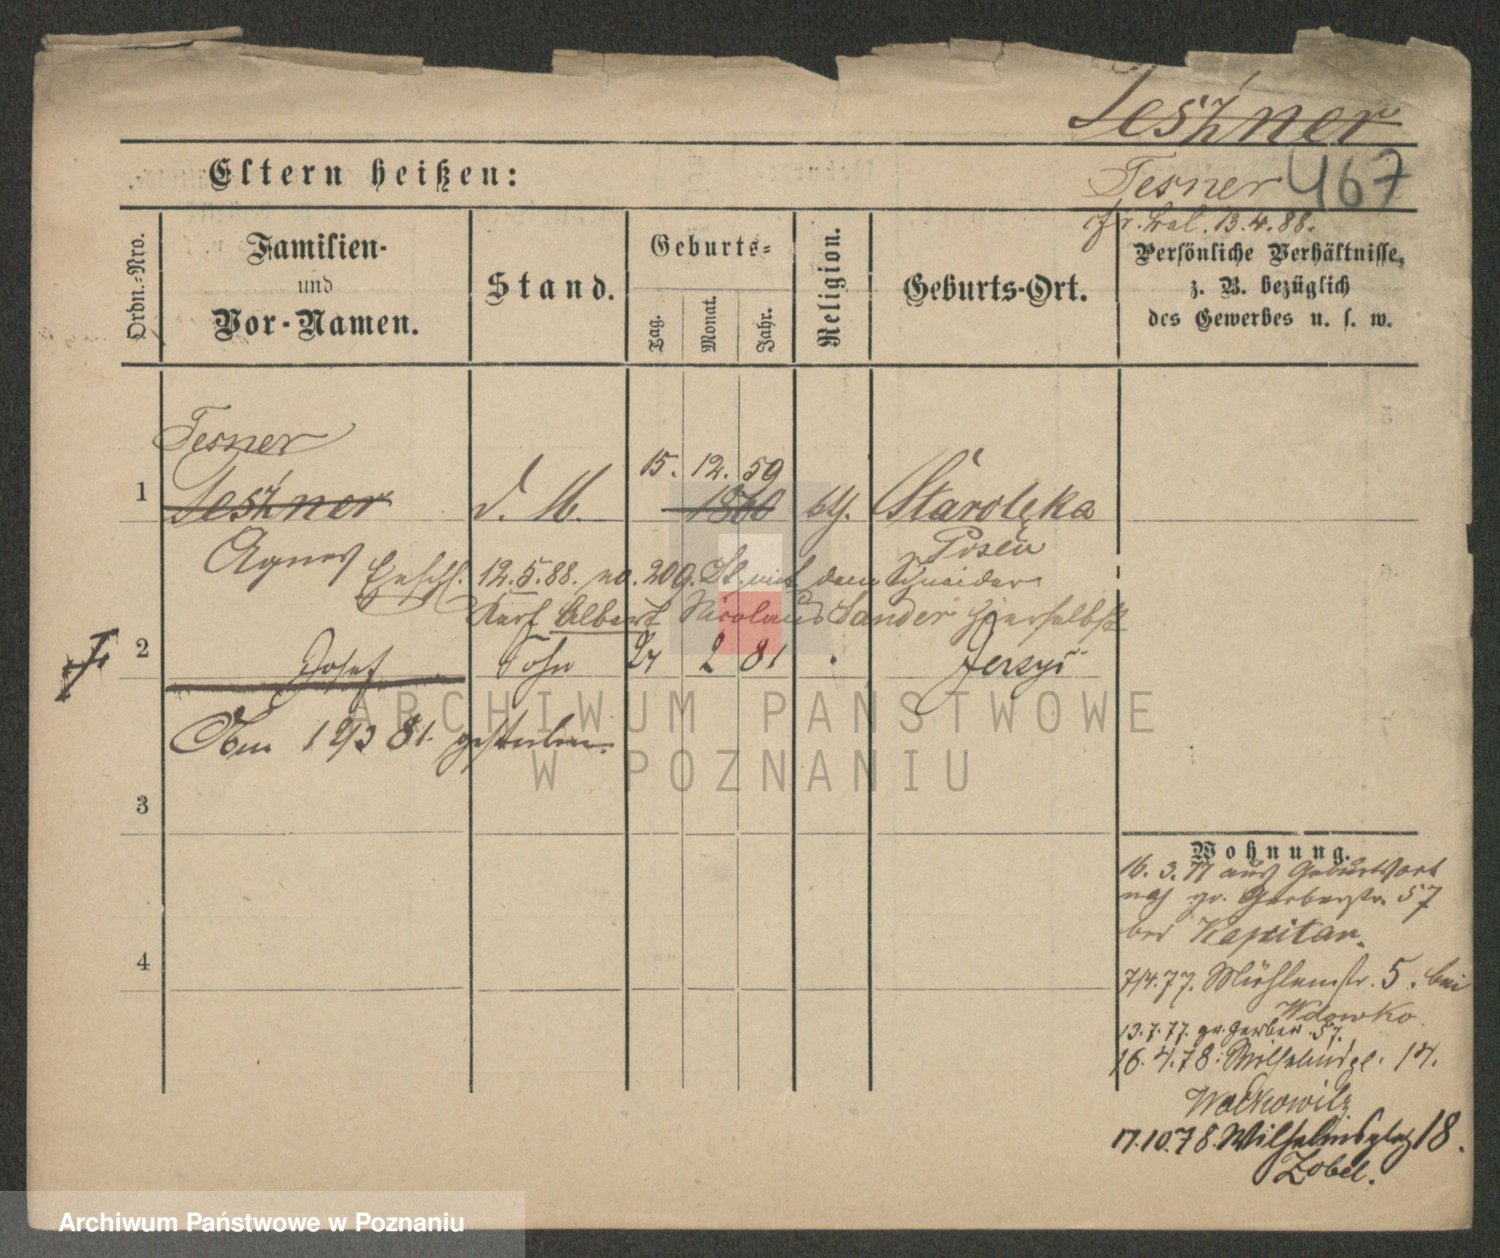 Leszner
Eltern heißen:
Tesner 467
13.4.88.
Ordn.-Nro.
Familien-
und
Vor-Namen.
Stand.
Geburts-
Tag.
Monat.
Jahr.
Religion.
Geburts-Ort.
Persönliche Verhältnisse,
z. B. bezüglich
des Gewerbes u. s. w.
Tesner
15. 12. 59
1 Leszner d. M. 1860 kth. Starolęka
Agnes Posen
12.5.88. no. 209. St. mit dem Schneider
Karl Albert Nicolaus Sander hierselbst
2 Josef Sohn 27 2 81 Jersyc
Am 12/3 81. gestorben.
3
4
Wohnung.
16. 3. 77 aus Geburtsort
nach gr. Gerberstr. 57
bei Kapitan.
7/4.77. Mühlenstr. 5. bei
Wdowko
13.7.77. gr. Gerber 57.
16.4.78. Wilhelmspl. 14.
Wolkowitz
17.10.78. Wilhelmsplatz 18.
Zobel.
ARCHIWUM PAŃSTWOWE
W POZNANIU
Archiwum Państwowe w Poznaniu